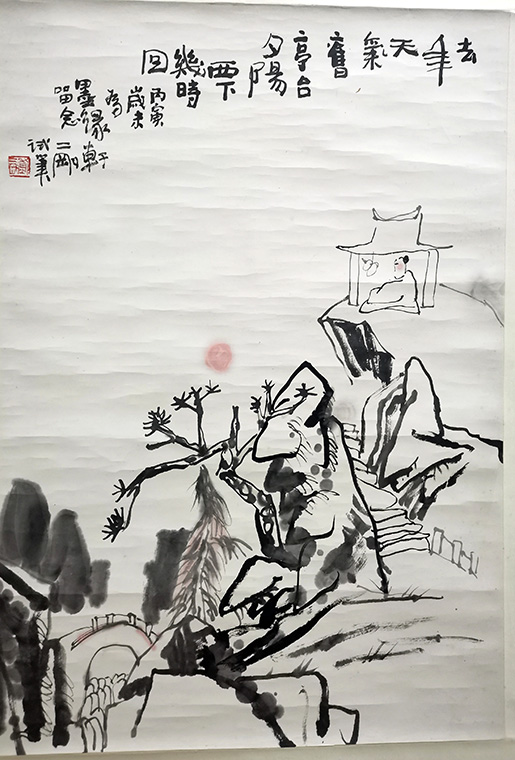 去
年
天
氣
舊
亭台
夕陽
西下
幾時
回
丙寅
歲末
為
墨緣軒
留念
二剛
试筆